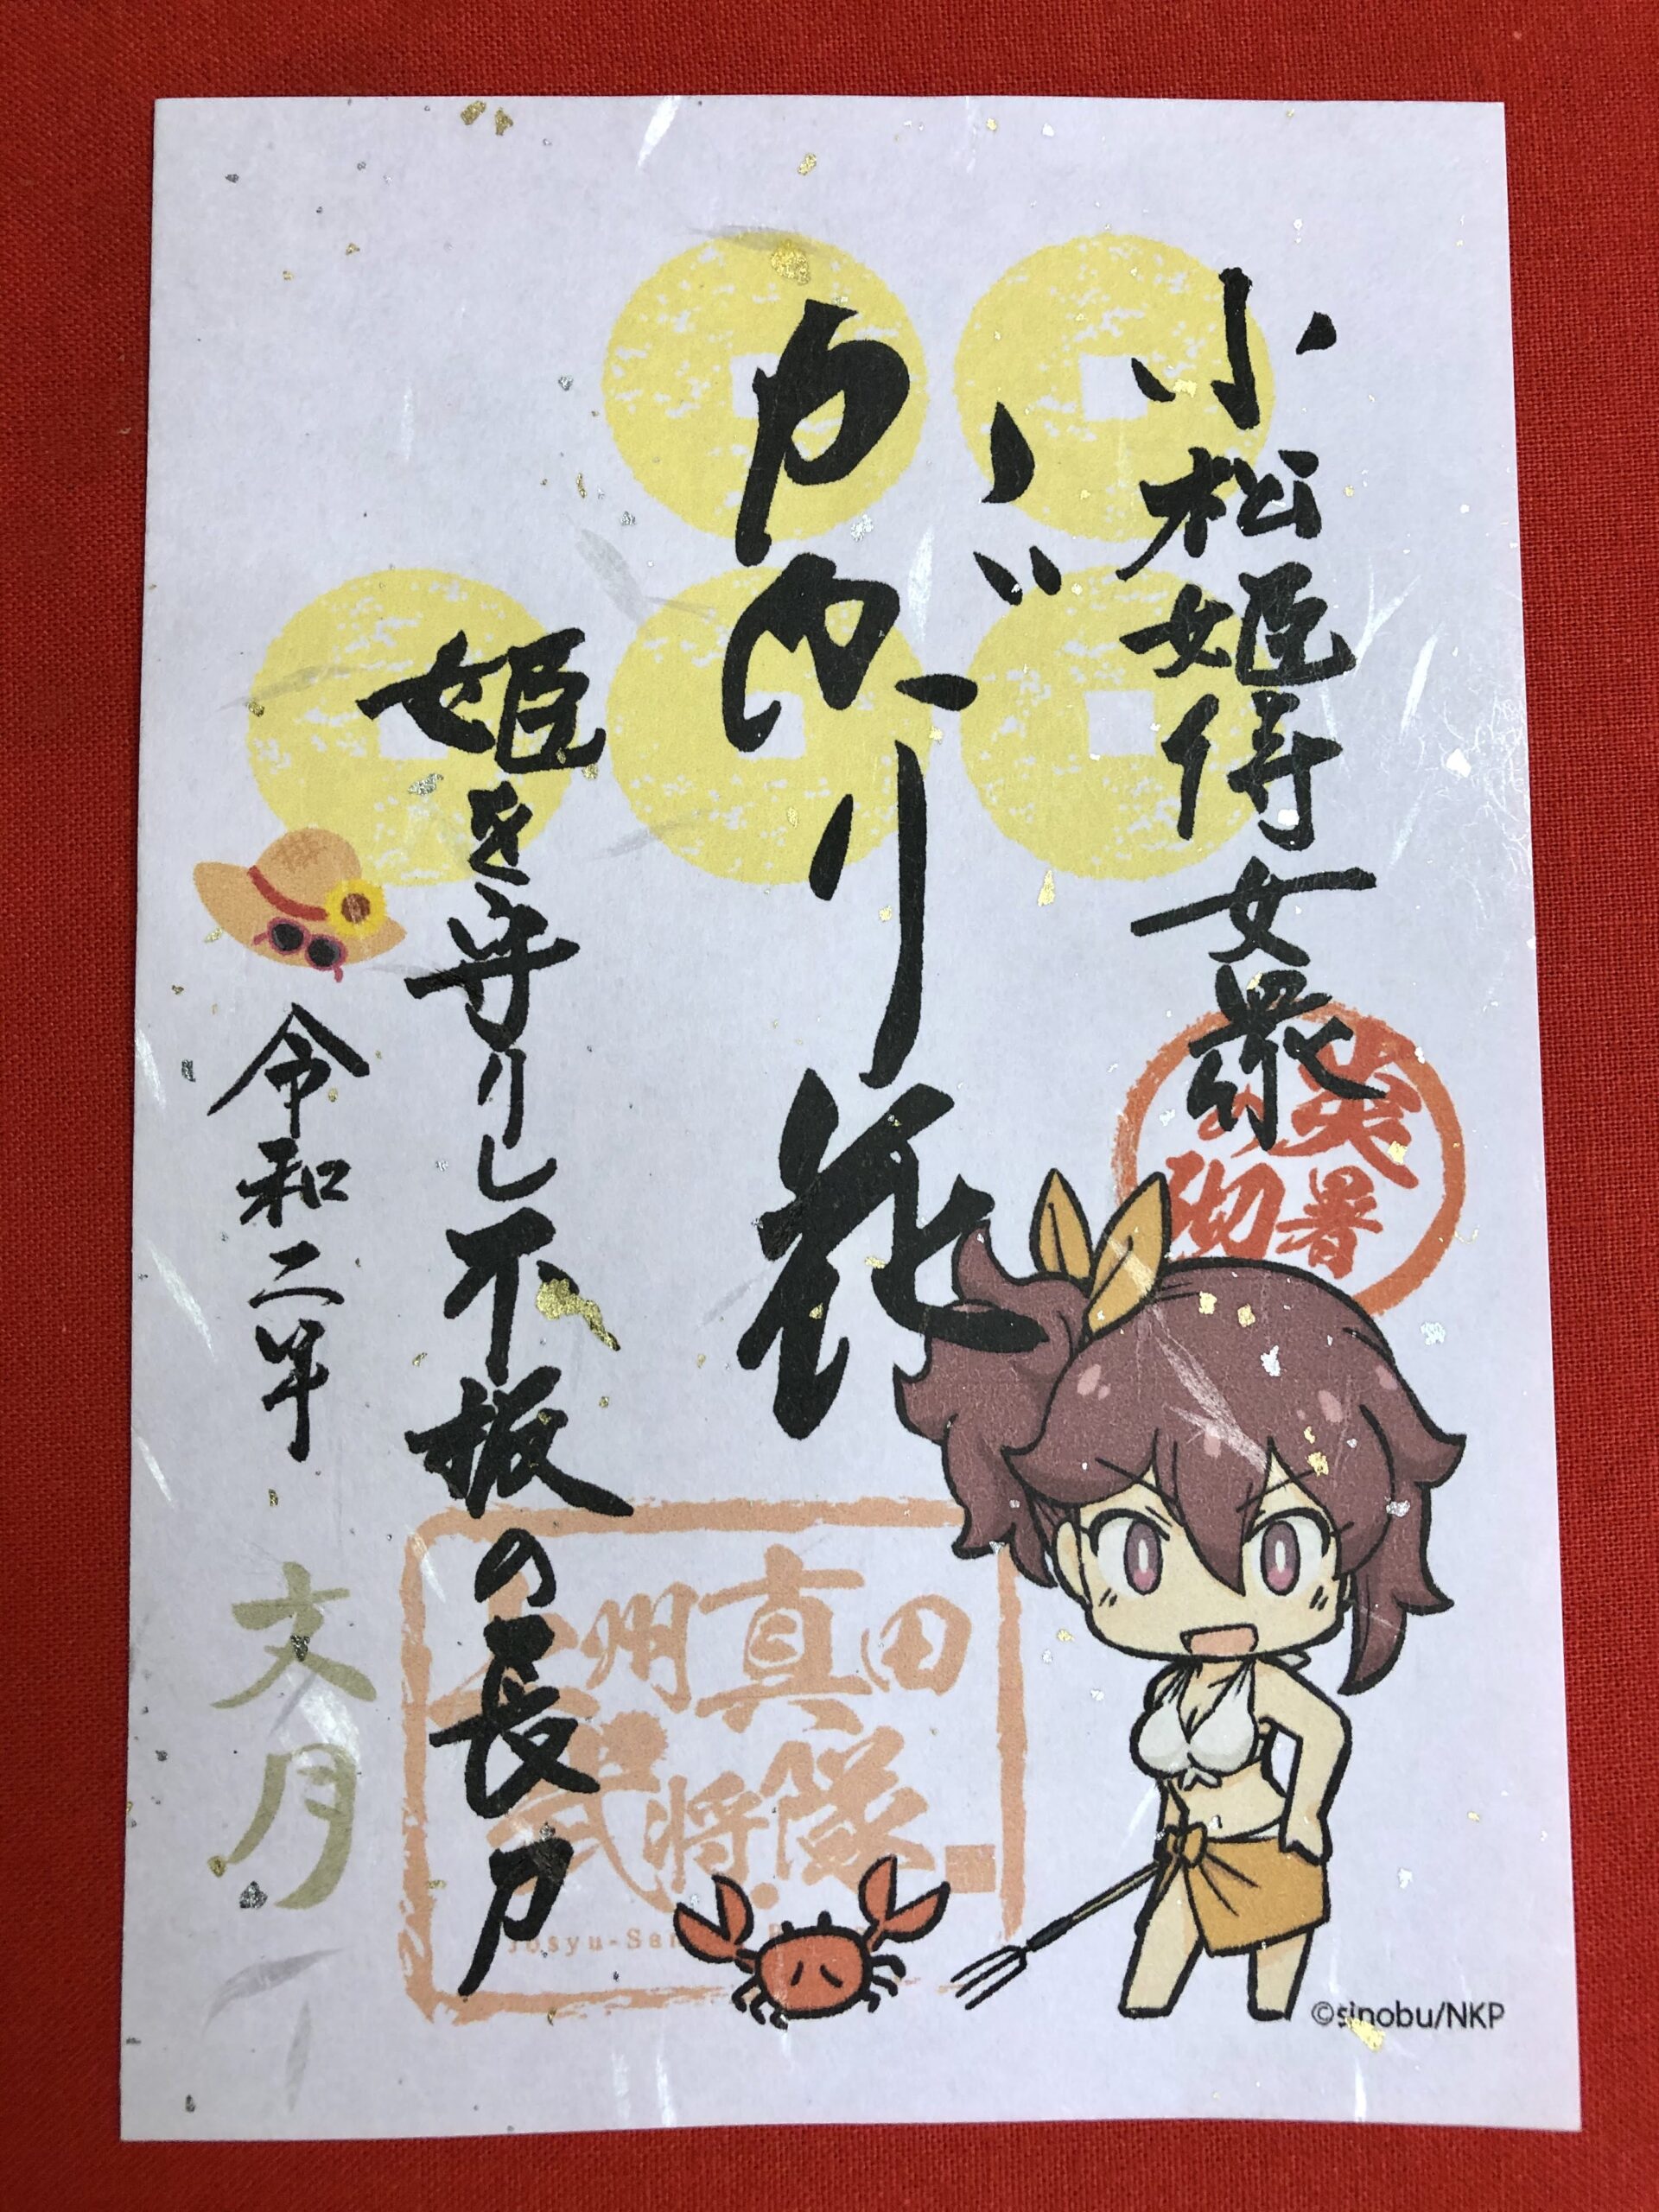 小松姫侍女衆
かがり花
姫を守りし不抜の長刀
令和二年 文月
炎暑
の砌
上州真田
武将隊
©sinobu/NKP